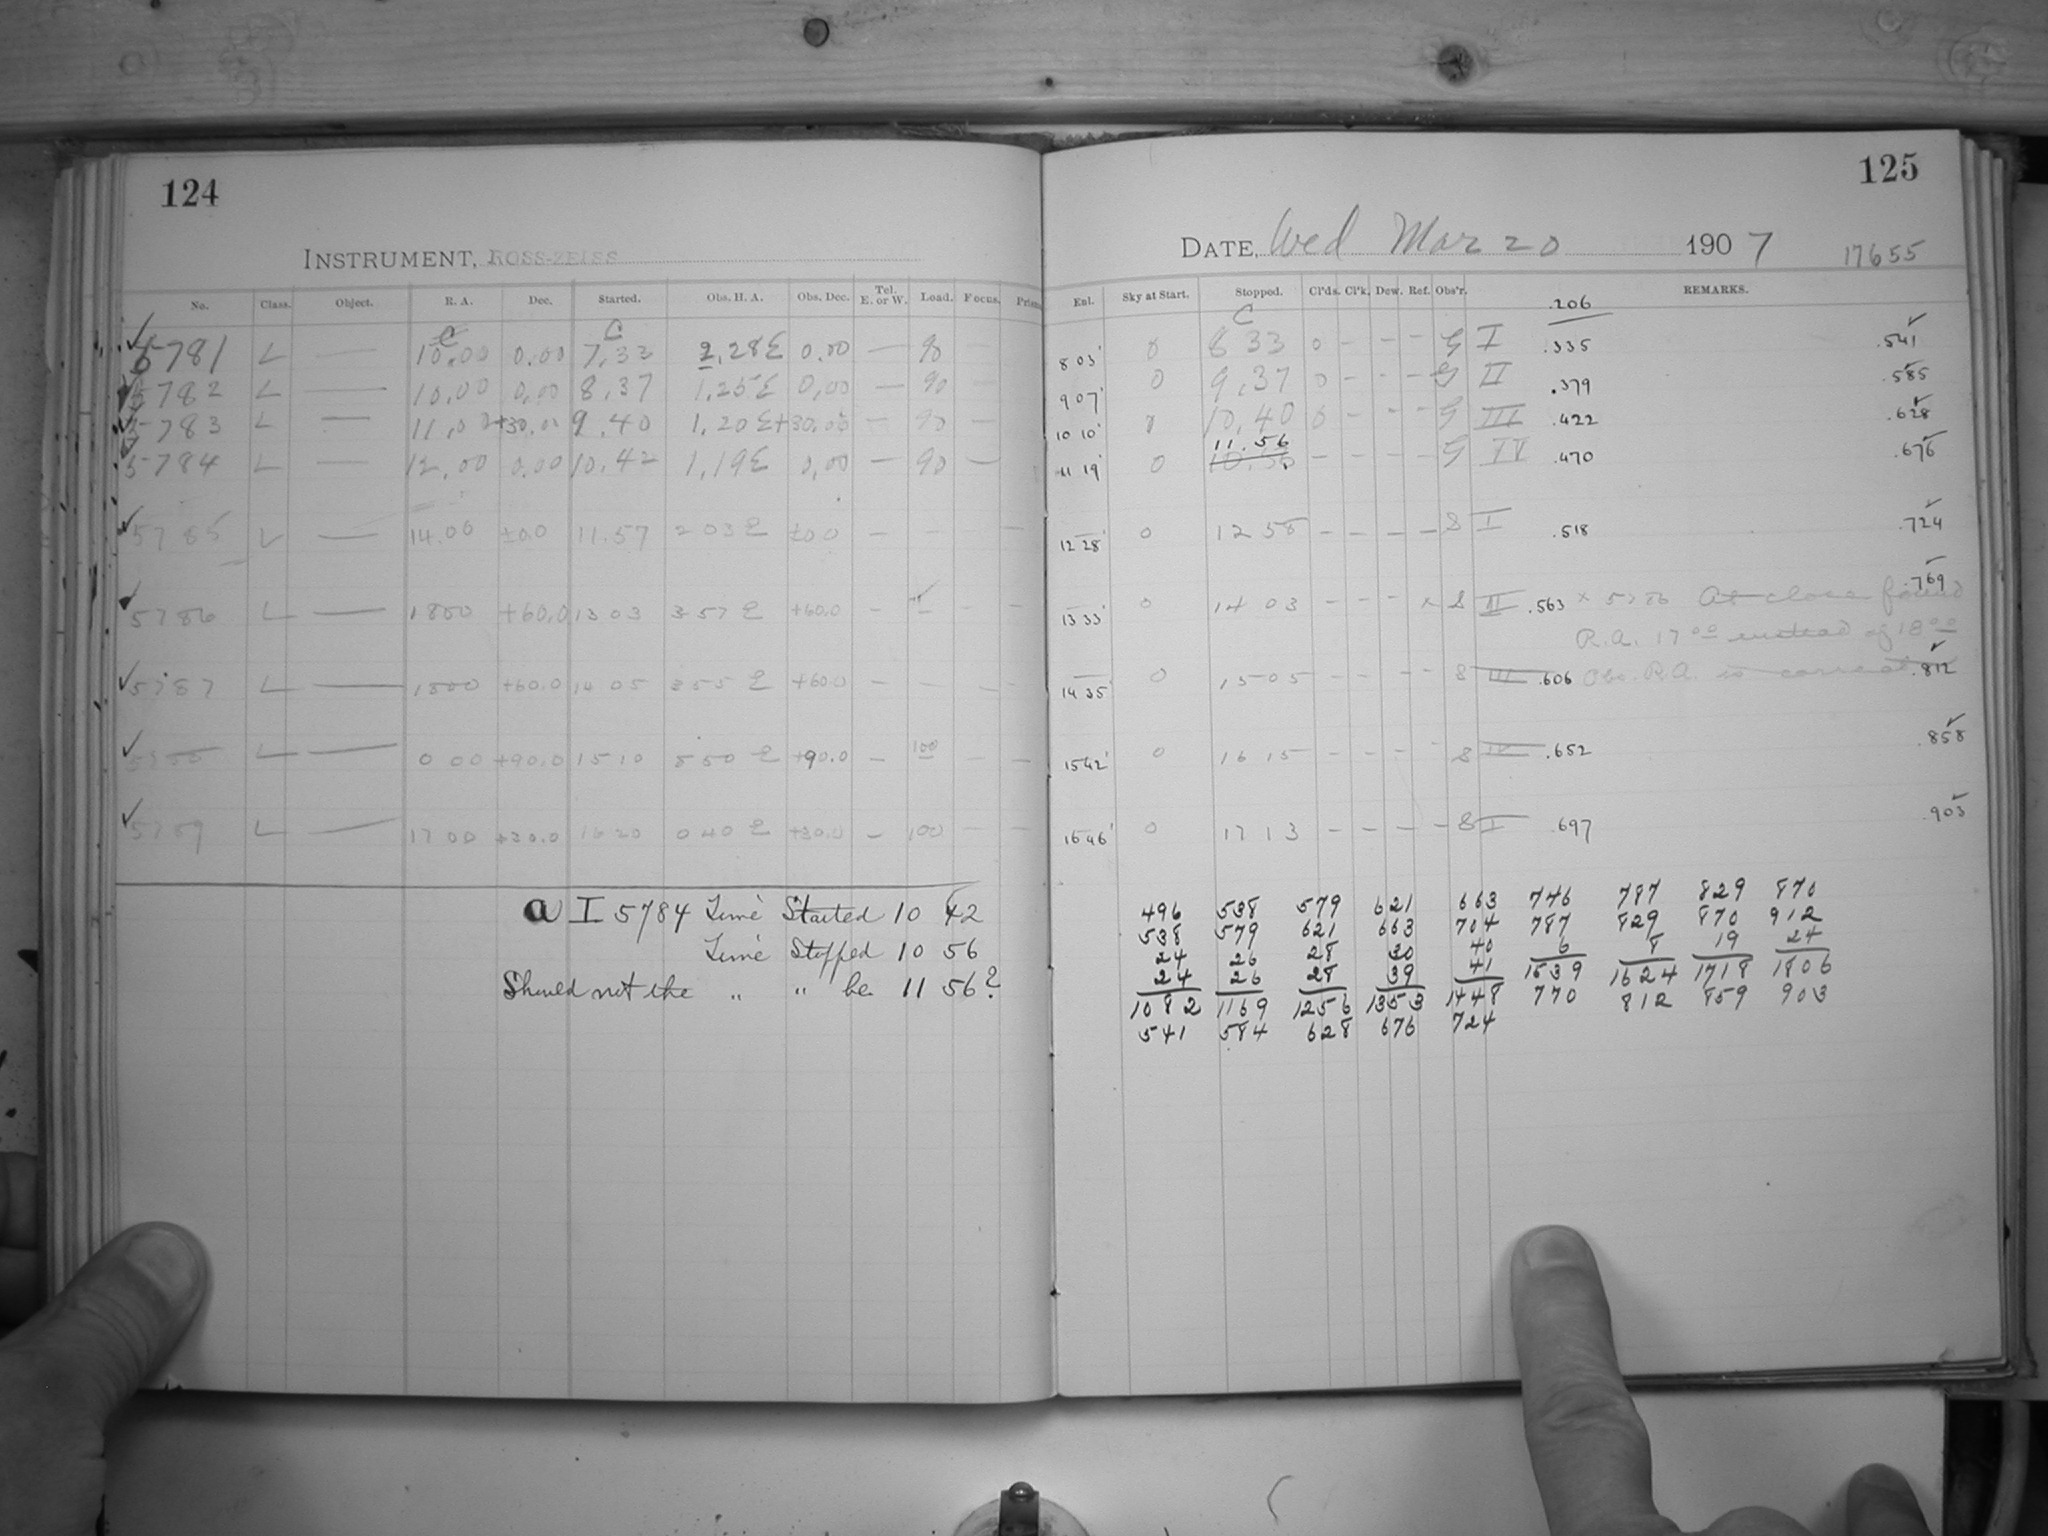 124
INSTRUMENT, ROSS-ZEISS
No. Class. Object. R. A. Dec. Started. Obs. H. A. Obs. Dec. Tel. E. or W. Load. Focus. Prism
C C
5781 L — 10.00 0.00 7.33 2.28E 0.00 — 90 —
5782 L — 10.00 0.00 8.37 1.25E 0.00 — 90 —
5783 L — 11.00 +30.00 9.40 1.20E +30.00 — 90 —
5784 L — 12.00 0.00 10.42 1.19E 0.00 — 90 —
5785 L — 14.00 ±0.0 11.57 2 03 E ±0.0 — — —
5786 L — 1800 +60.0 13 03 3 57 E +60.0 — —
5787 L — 1800 +60.0 14 05 3 55 E +60.0 — — — —
5788 L — 0 00 +90.0 15 10 8 50 E +90.0 — 100 — —
5789 L — 17 00 +30.0 16 20 0 40 E +30.0 — 100 — —
a I 5784 Time Started 10 42
Time Stopped 10 56
Should not the " " be 11 56?
125
DATE, Wed Mar 20 1907 17655
Enl. Sky at Start. Stopped. Cl'ds. Cl'k. Dew. Ref. Obs'r. REMARKS.
C .206
8 03 0 8 33 0 - - - G I .335 .541
9 07 0 9.37 0 - - - G II .379 .585
10 10 0 10.40 0 - - - G III .422 .628
11.56
11 19 0 10.56 - - - - G IV .470 .676
12 28 0 12 58 - - - - S I .518 .724
.769
13 33 0 14 03 - - - × S II .563 × 5786 At close found
R.A. 17 00 instead of 18 00
14 35 0 15 05 - - - - S III .606 Obs. R.A. is correct .812
15 42 0 16 15 - - - - S IV .652 .858
16 46 0 17 13 - - - - S I .697 .903
496 538 579 621 663 746 787 829 870
538 579 621 663 704 787 829 870 912
24 26 28 30 40 6 8 19 24
24 26 28 39 41 1539 1624 1718 1806
1082 1169 1256 1353 1448 770 812 859 903
541 584 628 676 724